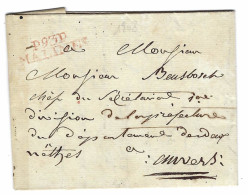 P93P
MALINES
a Monsieur
Monsieur Beusbosch
chef du Secrétariat 1ere
division de la préfecture
du département des deux
nêthes a
: anvers :